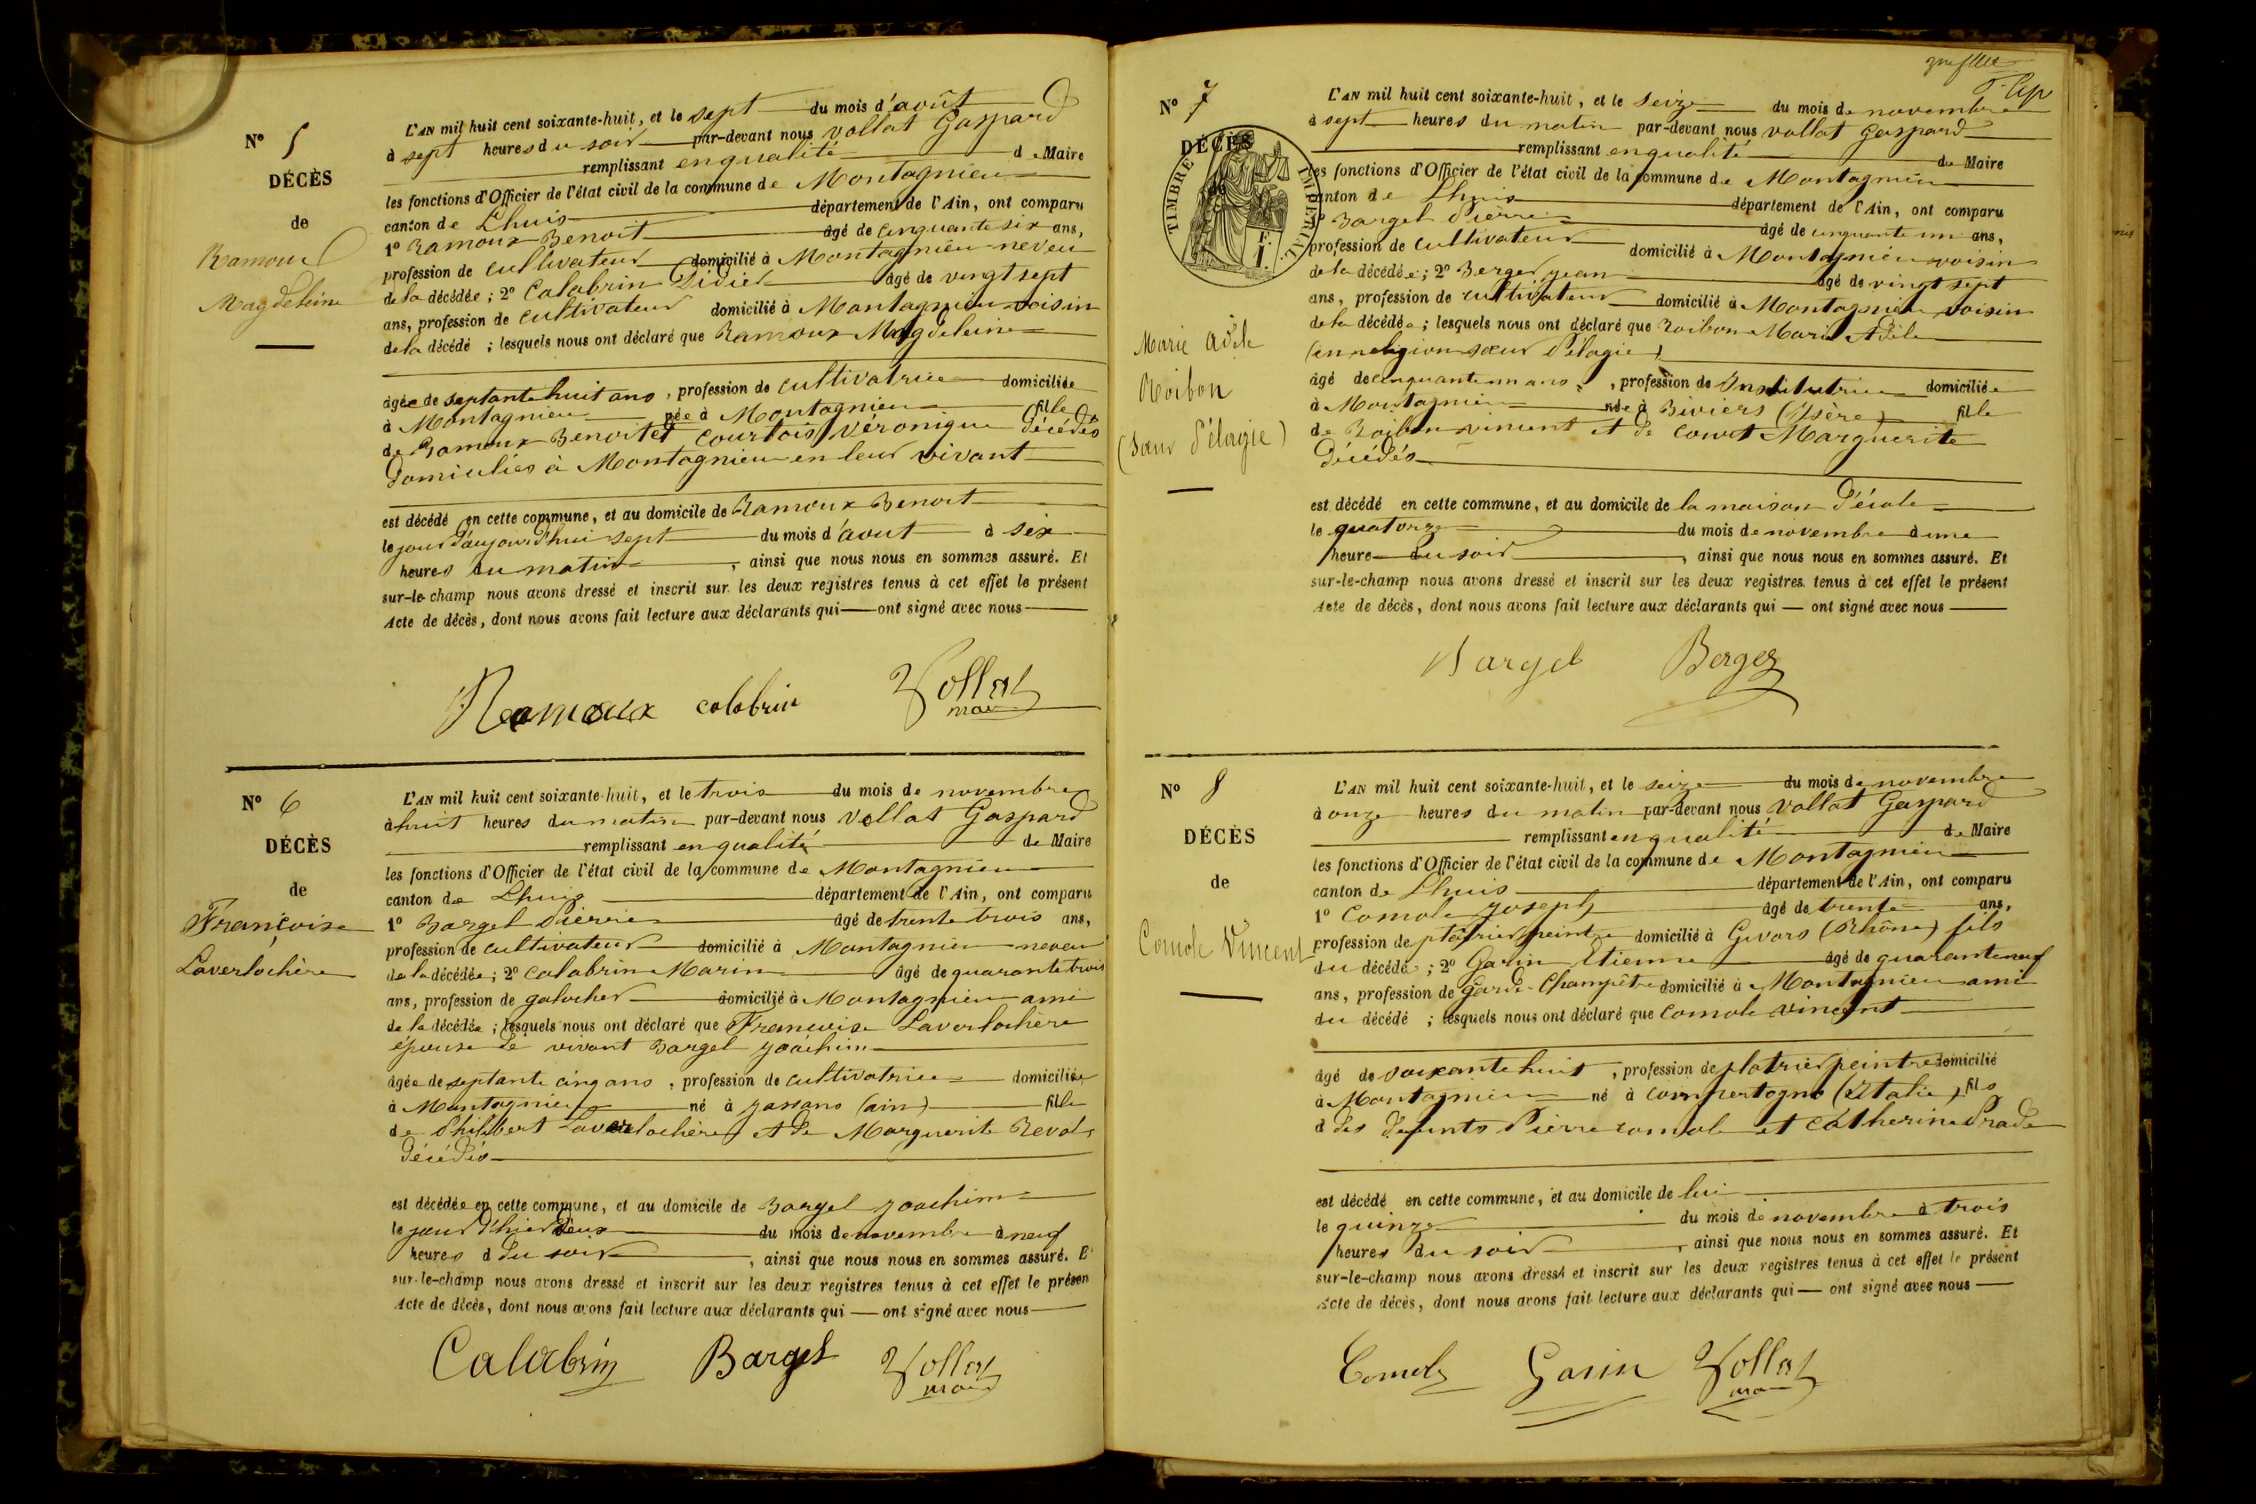 N° 5
DÉCÈS
de
Ramoux
Magdeleine
L'AN mil huit cent soixante-huit, et le sept du mois d'août
à sept heures du soir par-devant nous Vollat Gaspard
remplissant en qualité de Maire
les fonctions d'Officier de l'état civil de la commune de Montagnieu
canton de Lhuis département de l'Ain, ont comparu
1° Ramoux Benoit âgé de cinquante six ans,
profession de cultivateur domicilié à Montagnieu neveu
de la décédée ; 2° Calabrin Didier âgé de vingt sept
ans, profession de cultivateur domicilié à Montagnieu voisin
de la décédé ; lesquels nous ont déclaré que Ramoux Magdeleine
âgée de septante huit ans, profession de cultivatrice domiciliée
à Montagnieu née à Montagnieu fille
de Ramoux Benoit et Courtois Véronique décédés
domiciliés à Montagnieu en leur vivant
est décédé en cette commune, et au domicile de Ramoux Benoit
le jour d'aujourd'hui sept du mois d'aout à six
heures du matin, ainsi que nous nous en sommes assuré. Et
sur-le-champ nous avons dressé et inscrit sur les deux registres tenus à cet effet le présent
Acte de décès, dont nous avons fait lecture aux déclarants qui ont signé avec nous
Ramoux calabrin Vollat
maire
N° 6
DÉCÈS
de
Françoise
Laverlochère
L'AN mil huit cent soixante-huit, et le trois du mois de novembre
à huit heures du matin par-devant nous Vollat Gaspard
remplissant en qualité de Maire
les fonctions d'Officier de l'état civil de la commune de Montagnieu
canton de Lhuis département de l'Ain, ont comparu
1° Bargel Pierre âgé de trente trois ans,
profession de cultivateur domicilié à Montagnieu neveu
de la décédée ; 2° Calabrin Marin âgé de quarante trois
ans, profession de galocher domicilié à Montagnieu ami
de la décédée ; lesquels nous ont déclaré que Françoise Laverlochère
épouse de vivant Bargel Joachim
âgée de septante cinq ans, profession de cultivatrice domiciliée
à Montagnieu né à (ain) fille
de Philibert Laverlochère et de Marguerite Revol
décédés
est décédée en cette commune, et au domicile de Bargel Joachim
le jour d'hier deux du mois de novembre à neuf
heures d du soir, ainsi que nous nous en sommes assuré. E
sur-le-champ nous avons dressé et inscrit sur les deux registres tenus à cet effet le présen
Acte de décès, dont nous avons fait lecture aux déclarants qui ont signé avec nous
Calabrin Bargel Vollat
maire
N° 7
DÉCÈS
TIMBRE IMPÉRIAL
Marie Adèle
Roibon
(Sœur Pélagie)
L'AN mil huit cent soixante-huit, et le seize du mois de novembre
à sept heures du matin par-devant nous Vollat Gaspard
remplissant en qualité de Maire
les fonctions d'Officier de l'état civil de la commune de Montagnieu
canton de Lhuis département de l'Ain, ont comparu
1° Bargel Pierre âgé de cinquante un ans,
profession de cultivateur domicilié à Montagnieu voisin
de la décédée ; 2° Berger Jean âgé de vingt sept
ans, profession de cultivateur domicilié à Montagnieu voisin
de la décédée ; lesquels nous ont déclaré que Roibon Marie Adèle
(en religion sœur Pélagie)
âgé de cinquante un ans, profession de Institutrice domiciliée
à Montagnieu née à Biviers (Isère) fille
de Roibon vincent et de Marguerite
décédés
est décédé en cette commune, et au domicile de la maison d'école
le quatorze du mois de novembre à une
heure du soir, ainsi que nous nous en sommes assuré. Et
sur-le-champ nous avons dressé et inscrit sur les deux registres tenus à cet effet le présent
Acte de décès, dont nous avons fait lecture aux déclarants qui ont signé avec nous
Bargel Berger
N° 8
DÉCÈS
de
Comole Vincent
L'AN mil huit cent soixante-huit, et le seize du mois de novembre
à onze heures du matin par-devant nous Vollat Gaspard
remplissant en qualité de Maire
les fonctions d'Officier de l'état civil de la commune de Montagnieu
canton de Lhuis département de l'Ain, ont comparu
1° Comole Joseph âgé de trente ans,
profession de plâtrier peintre domicilié à Givors (Rhône) fils
du décédé ; 2° Garin Etienne âgé de quarante neuf
ans, profession de garde-Champêtre domicilié à Montagnieu ami
du décédé ; lesquels nous ont déclaré que Comole vincent
âgé de soixante huit, profession de platrier peintre domicilié
à Montagnieu né à Compertogno (Italie) fils
d des defunts Pierre comole et Catherine Prade
est décédé en cette commune, et au domicile de lui
le quinze du mois de novembre à trois
heures du soir, ainsi que nous nous en sommes assuré. Et
sur-le-champ nous avons dressé et inscrit sur les deux registres tenus à cet effet le présent
Acte de décès, dont nous avons fait lecture aux déclarants qui ont signé avec nous
Comole Garin Vollat
maire